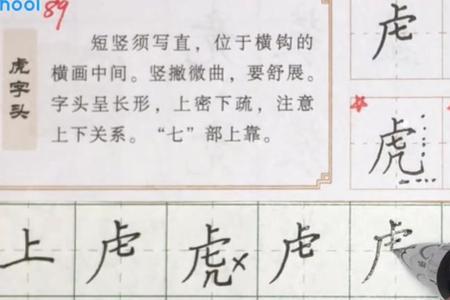 hool
89
虎字头
短竖须写直，位于横钩的
横画中间。竖撇微曲，要舒展。
字头呈长形，上密下疏，注意
上下关系。“七”部上靠。
虍
虎
上 虍 虎 × 虍 虍